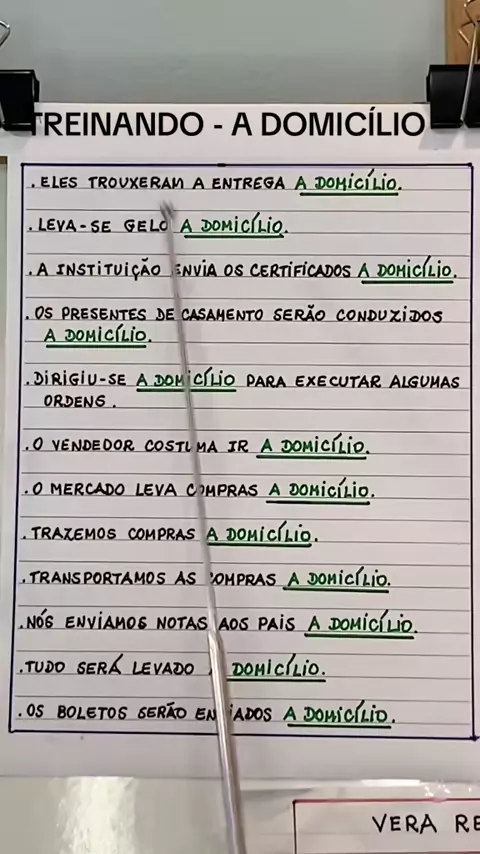 TREINANDO - A DOMICÍLIO
. ELES TROUXERAM A ENTREGA A DOMICÍLIO.
. LEVA-SE GELO A DOMICÍLIO.
. A INSTITUIÇÃO ENVIA OS CERTIFICADOS A DOMICÍLIO.
. OS PRESENTES DE CASAMENTO SERÃO CONDUZIDOS
A DOMICÍLIO.
. DIRIGIU-SE A DOMICÍLIO PARA EXECUTAR ALGUMAS
ORDENS.
. O VENDEDOR COSTUMA IR A DOMICÍLIO.
. O MERCADO LEVA COMPRAS A DOMICÍLIO.
. TRAZEMOS COMPRAS A DOMICÍLIO.
. TRANSPORTAMOS AS COMPRAS A DOMICÍLIO.
. NÓS ENVIAMOS NOTAS AOS PAIS A DOMICÍLIO.
. TUDO SERÁ LEVADO A DOMICÍLIO.
. OS BOLETOS SERÃO ENVIADOS A DOMICÍLIO.
VERA RE